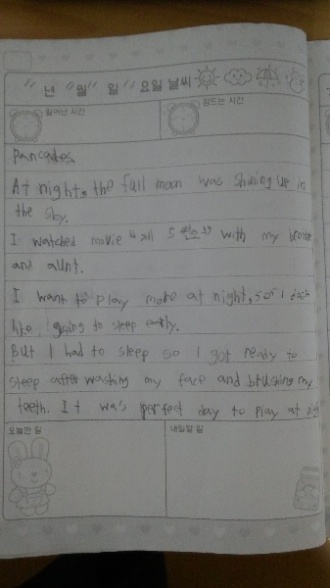 년 월 일 요일 날씨
일어난 시간 잠드는 시간
Pancakes.
At night, the full moon was shining up in
the sky.
I watched movie "제 5 원소" with my brother
and aunt.
I want to play more at night, so I don't
like going to sleep early.
But I had to sleep so I got ready to
sleep after washing my face and brushing my
teeth. It was perfect day to play at
오늘한 일 내일할 일